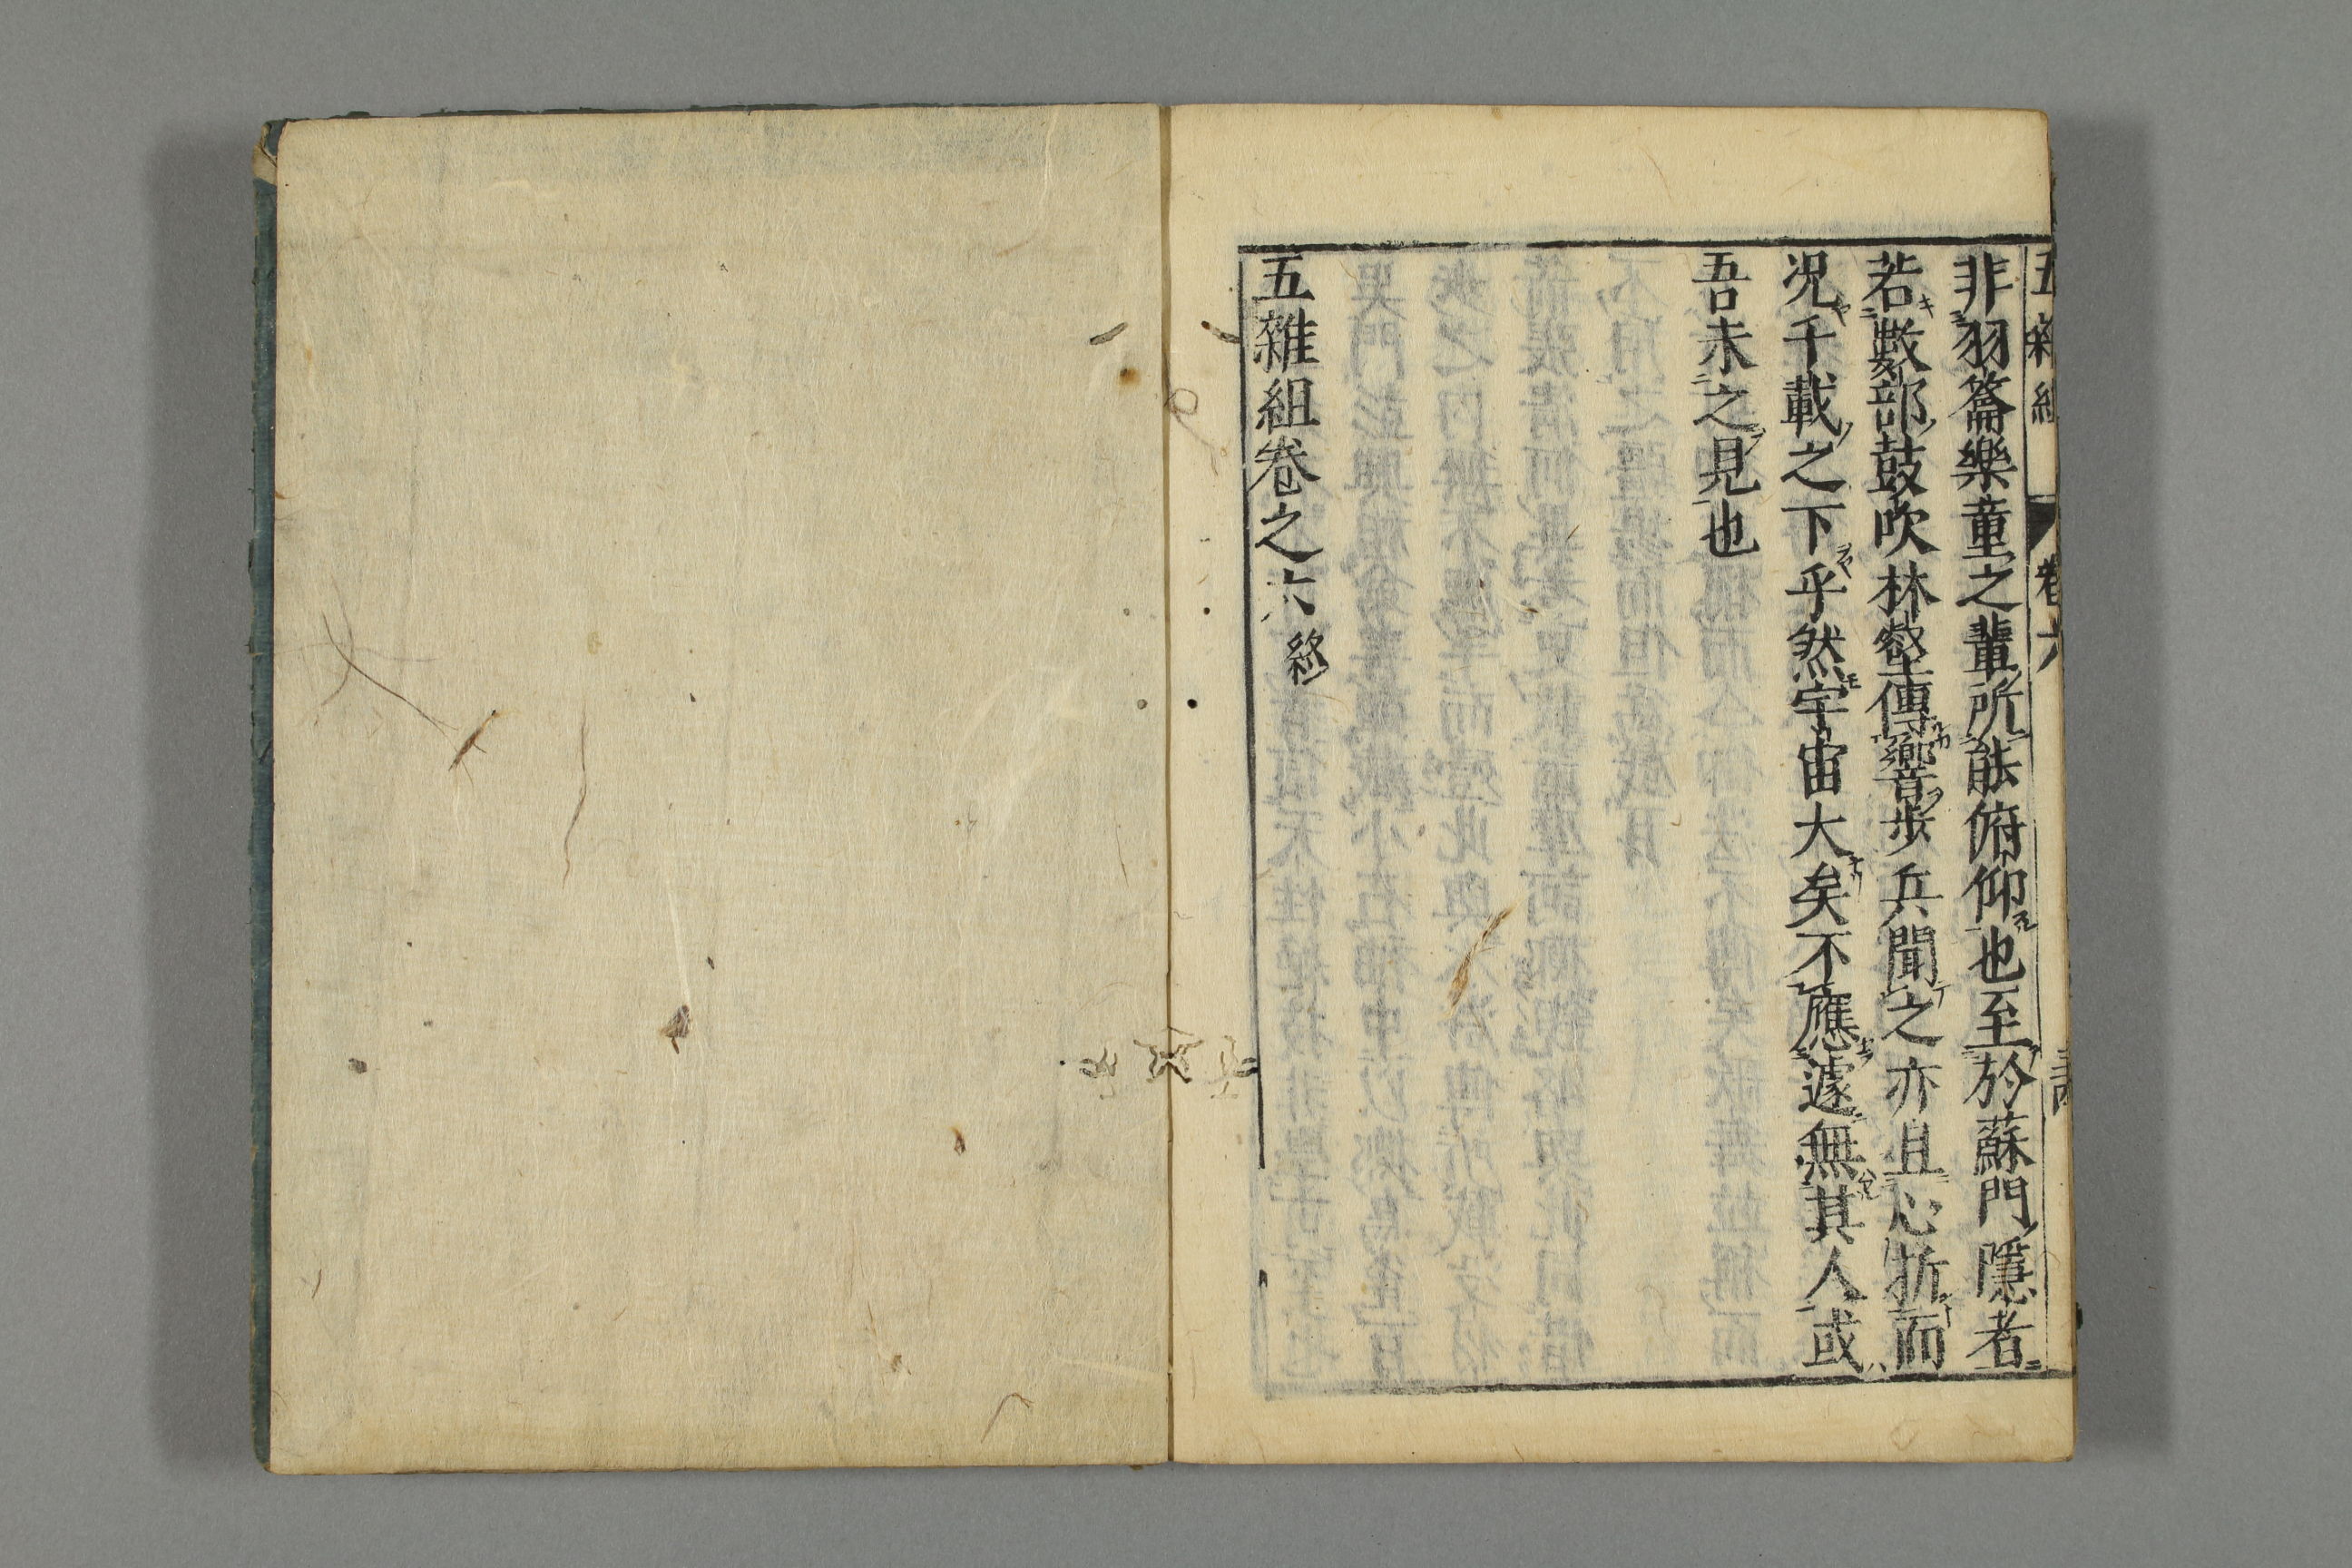 五雜組 卷六
非羽籥樂童之輩所能俯仰也至於蘇門隱者
若數部鼓吹林壑傳響步兵聞之亦且心折而
况千載之下乎然宇宙大矣不應遽無其人或
吾未之見也
五雜組卷之六終